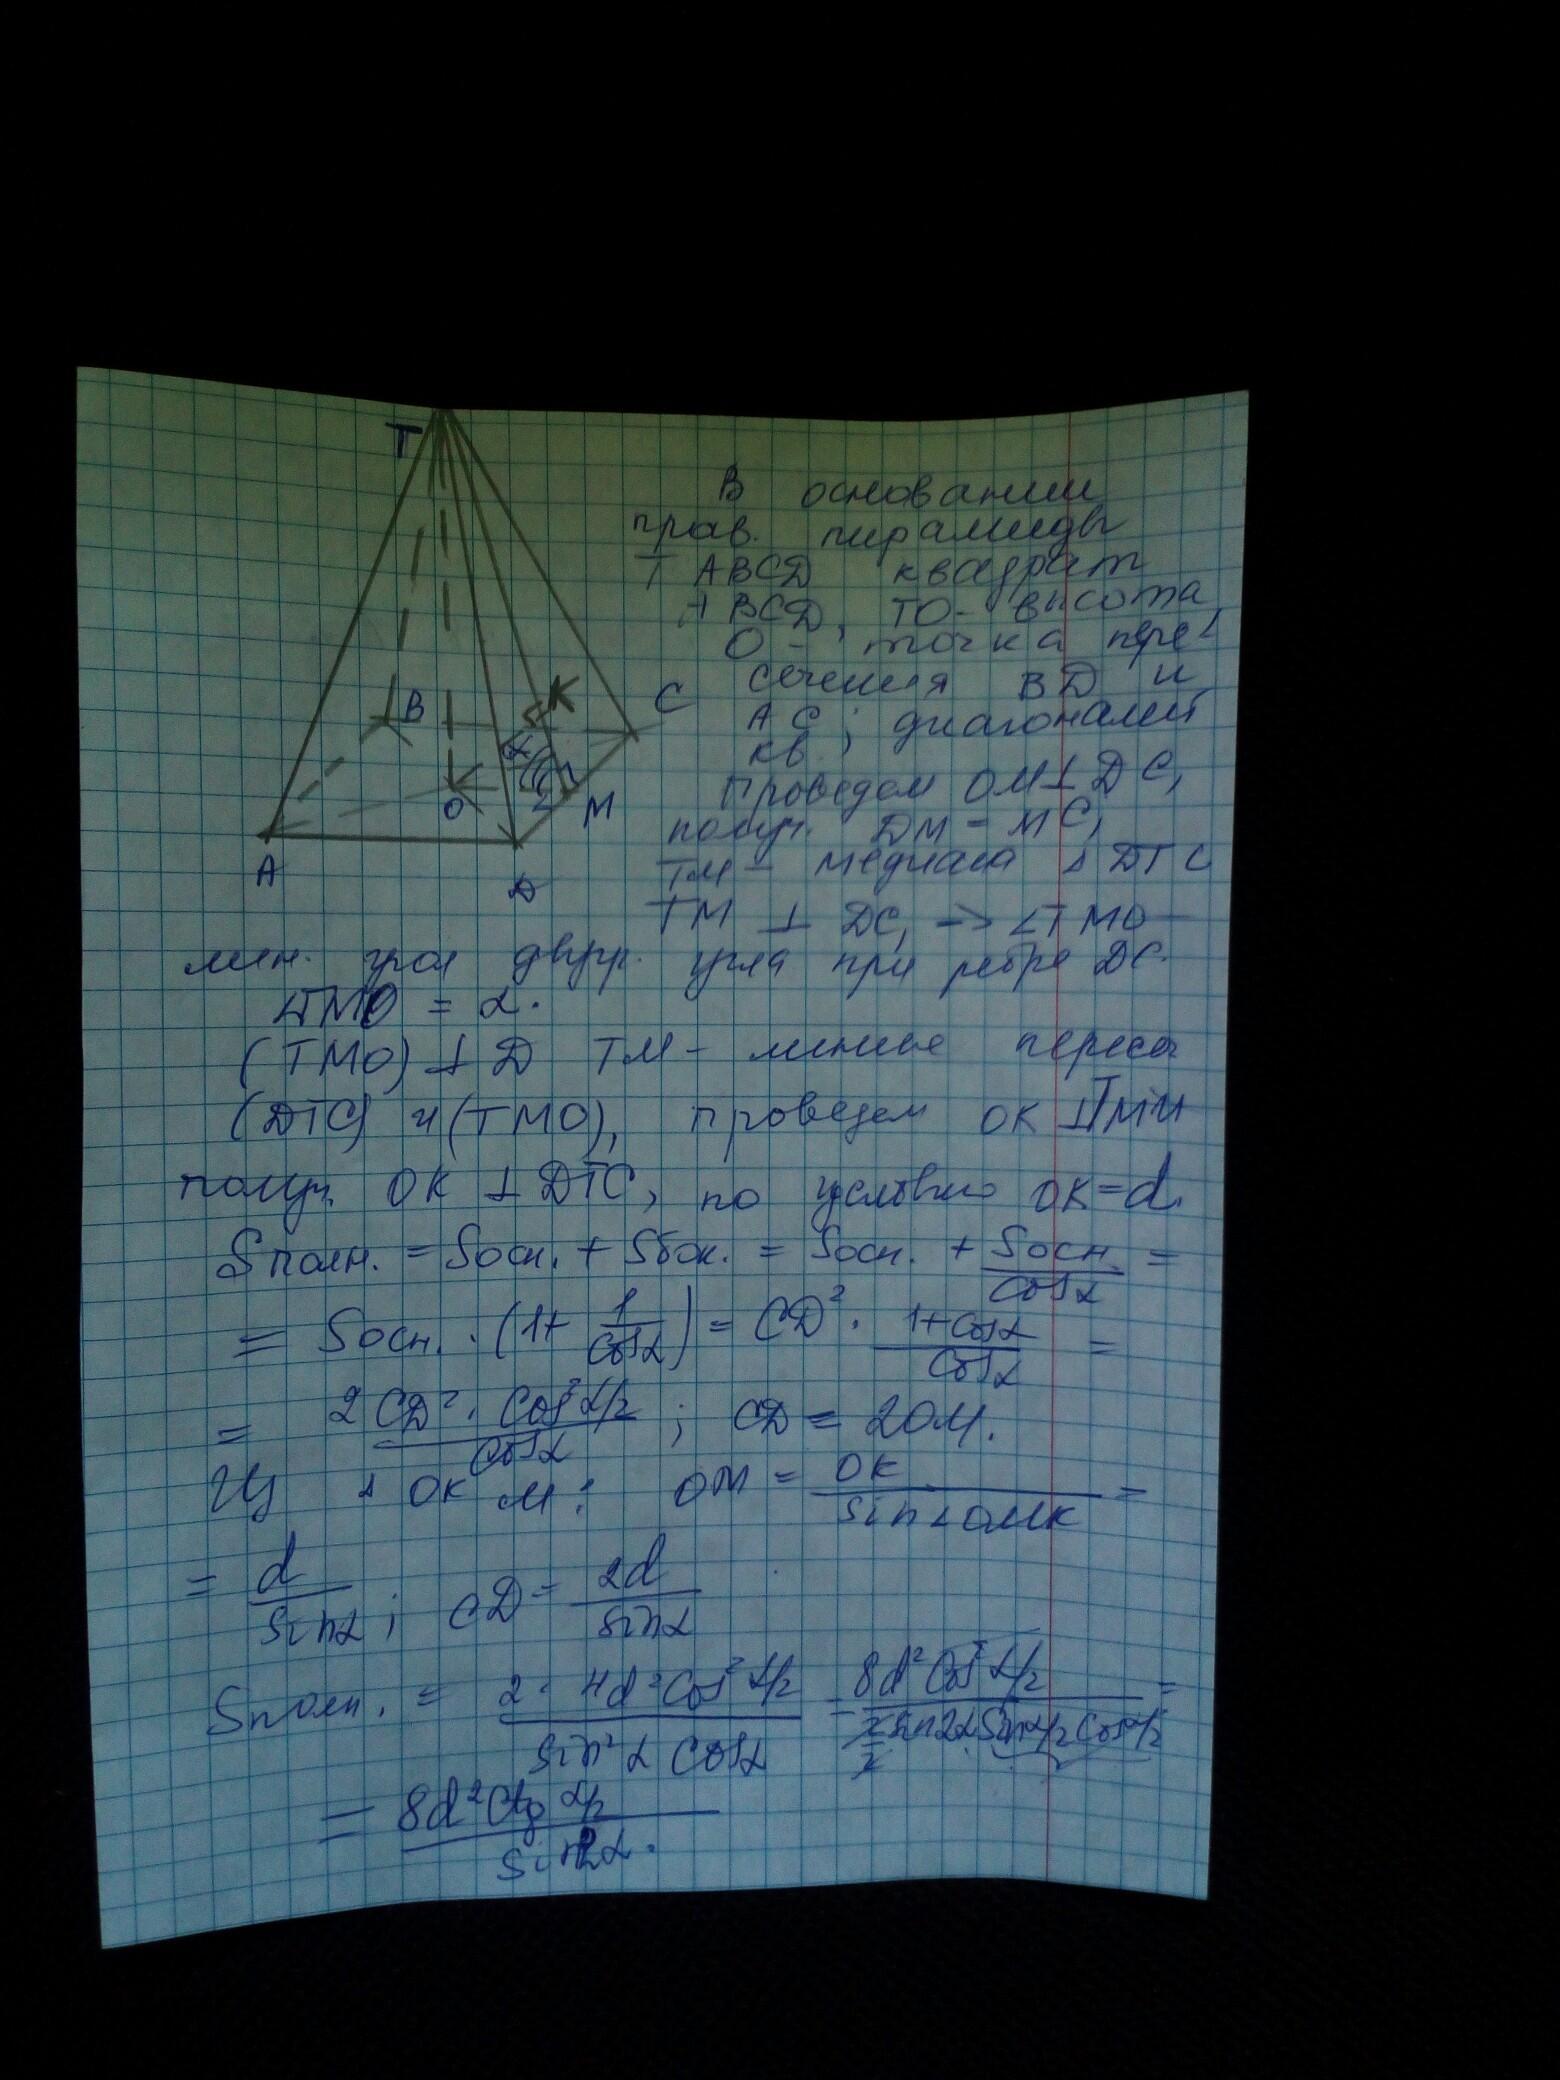 T
В основании
прав. пирамиды
TABCD квадрат
ABCD, TO - высота
O - точка пере
сечения BD и
AC; диагоналей
кв.
Проведем OM⊥DC,
получ. DM = MC,
TM - медиана ΔDTC
TM ⊥ DC, -> ∠TMO -
B
K
C
α
O
M
A
D
лин. угол двугр. угла при ребре DC.
∠TMO = α.
(TMO) ⊥ D TM - линие пересеч
(DTC) и (TMO), проведем OK ⊥ TM и
получ. OK ⊥ DTC, по условию OK = d.
Sполн. = Sосн. + Sбок. = Sосн. + Sосн./cosα =
= Sосн. · (1 + 1/cosα) = CD² · (1 + cosα)/cosα =
= 2CD² · cos²α/2 / cosα ; CD = 2OM.
Из Δ OKM: OM = OK/sin∠OMK =
= d/sinα ; CD = 2d/sinα
Sполн. = 2 · 4d²cos²α/2 / sin²α cosα = 8d²cos²α/2 / sin2α sinα/2 cosα/2 =
= 8d²ctg α/2 / sin2α.